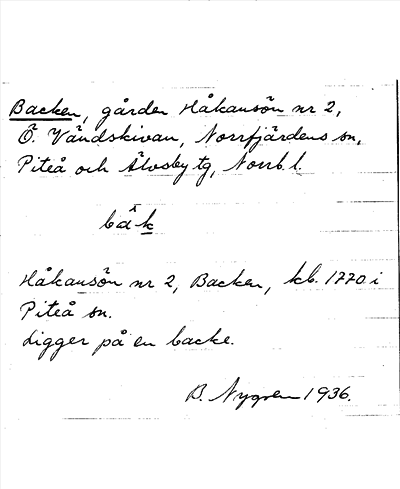 Backen, gården Håkansön nr 2,
Ö. Vändskivan, Norrfjärdens sn,
Piteå och Älvsby tg, Norrb. l.
båk
Håkansön nr 2, Backen, kb. 1770 i
Piteå sn.
Ligger på en backe.
B. Nygren 1936.